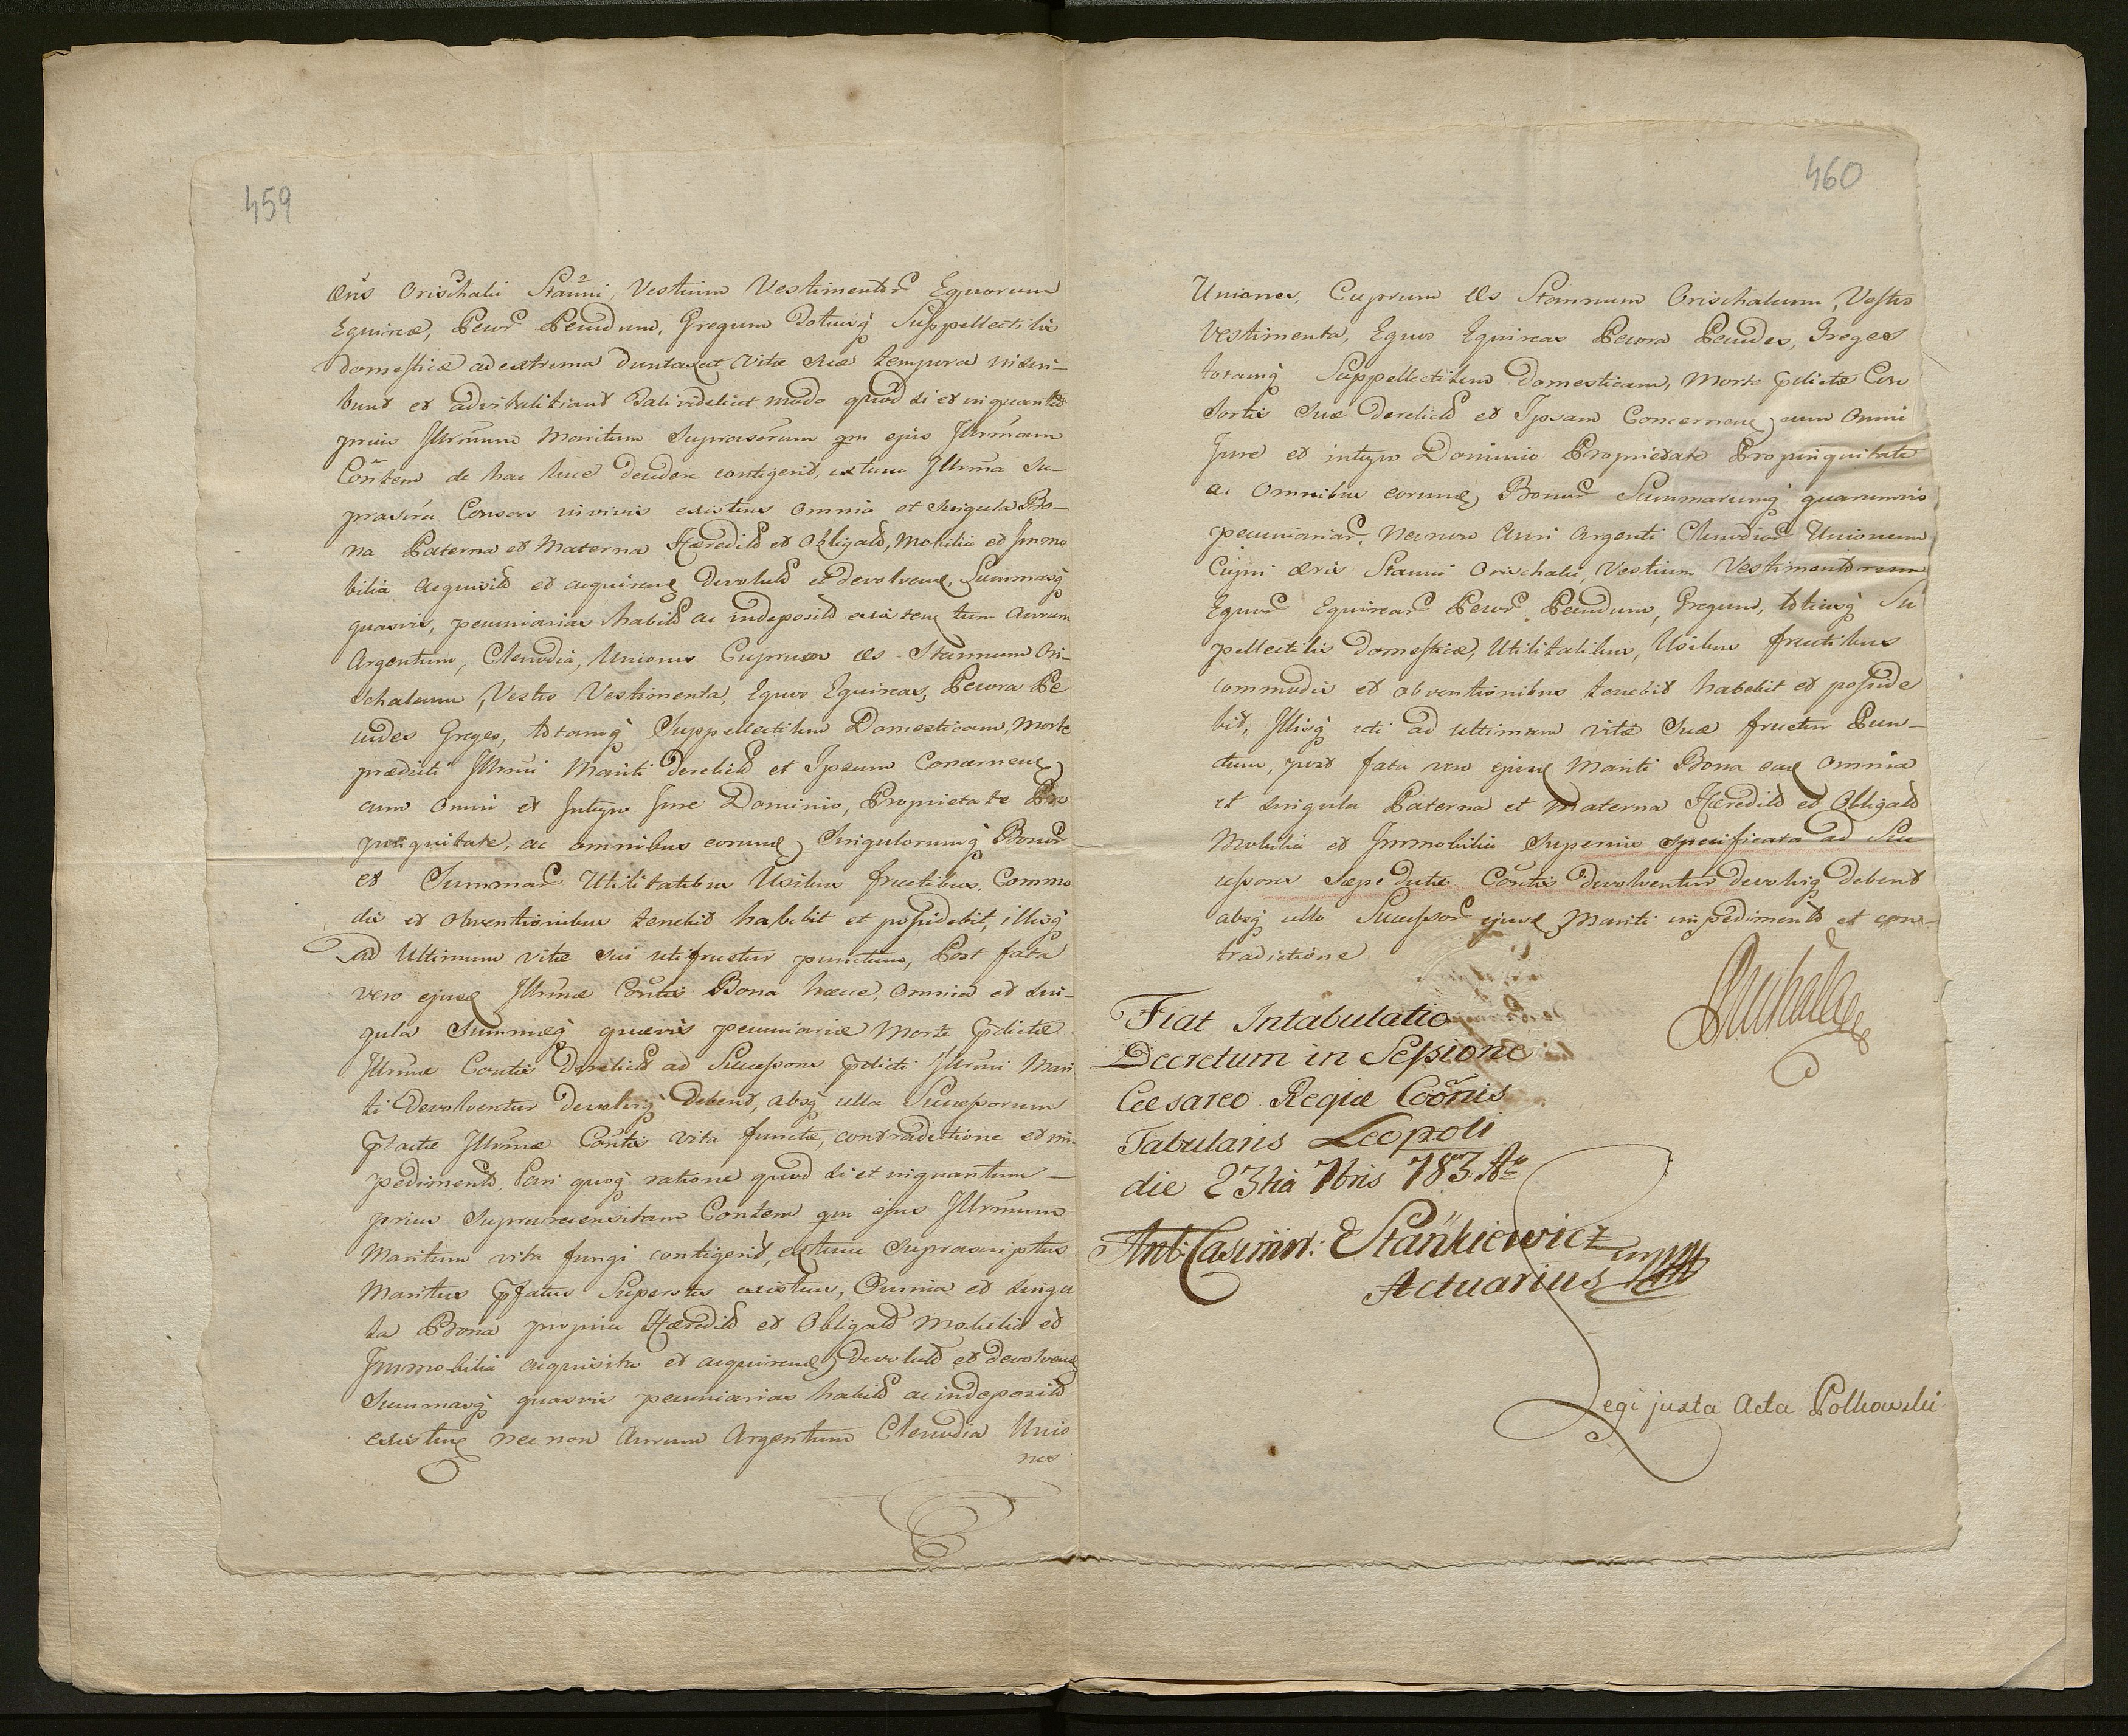 459
æris Orischalci Stanni, Vestium Vestimentor Equorum
Equireæ, Pecor Pecudum, Gregum totiusq Suppellectilis
domesticæ ad extrema duntaxat vitæ suæ tempora inscri-
bunt et advitalitiant Tali videlicet modo quod si et inquantum
prius Illrmum Maritum Suprascrum qm ejus Illrmam
Contem de hac luce decedere contigerit, extunc Illrma Su-
prascra Consors in vivis existens omnia et singula Bo-
na Paterna et Materna Hæredit et Obligat, Mobilia et Immo
bilia Acquisit et acquirend Devolut et devolvend, Summasq
quasvis, pecuniarias habit ac indeposit existen tum Aurum
Argentum, Clenodia, Uniones Cuprum Æs Stannum Ori-
schalcum, Vestes Vestimenta, Equos Equireas, Pecora Pe
cudes Greges, totamq Suppellectilem Domesticam, Morte
prædicti Illrmi Mariti derelict et Ipsum Concernen
cum Omni et Integro Jure Dominio, Proprietate Pro
pinquitate, ac omnibus eorund, Singulorumq Bonor
et Summar Utilitatibus Usibus fructibus, Commo
dis et Obventionibus tenebit habebit et possidebit, illisq
ad Ultimum vitæ sui utifruetur punctum, Post fata
vero ejusd Illrmæ Contis Bona hæcce, Omnia et sin-
gula Summæq quævis pecuniariæ Morte pdictæ
Illrmæ Contis Derelict ad Successores pdicti Illrmi Mari
ti Devolventur devolviq debent, absq ulla Successorum
ptactæ Illrmæ Contis vita functæ, contradictione et im-
pediment, Pari quoq ratione quod si et inquantum
prius Suprarecensitam Contem qm ejus Illrmum
Maritum vita fungi contigerit, extunc Suprascriptus
Maritus pfatus Superstes existens, Omnia et singu
la Bona propria Hæredit et Obligat Mobilia et
Immobilia acquisita et acquirend, Devolut et devolvend
Summasq quasvis pecuniarias habit ac indeposit
existen necnon Aurum Argentum Clenodia Unio
nes
460
Uniones, Cuprum Æs Stannum Orischalcum, Vestes
Vestimenta, Equos Equireas Pecora Pecudes, Greges
totamq Suppellectilem Domesticam, Morte pdictæ Con
sortis Suæ derelict et Ipsam Concernen, cum Omni
Jure et integro Dominio Proprietate Propinquitate
ac Omnibus eorund, Bonor Summarumq quarumvis
pecuniariar, Necnon Auri Argenti Clenodior Unionum
Cupri æris Stanni Orischalci, Vestium Vestimentorum
Equor Equirear Pecor Pecudum, Gregum, totiusq Su
pellectilis Domesticæ, Utilitatibus, Usibus fructibus
commodis et obventionibus tenebit habebit et posside
bit, Illisq uti ad ultimam vitæ suæ fruetur Punc-
tum, post fata vero ejusd Mariti Bona ead Omnia
et singula Paterna et Materna Hæredit et Obligat
Mobilia et Immobilia Superius specificata ad Suc
cessores Sæpe dictæ Contis devolventur devolviq debent
absq ullo Successor ejusd Mariti impediment et con-
tradictione
Fiat Intabulatio
Decretum in Sessione
Cæsareo Regiæ Coonis
Tabularis Leopoli
die 23tia 7bris 783 Ao
Ant: Casimir: Stankiewicz
Actuarius
Legi juxta Acta Polkowski